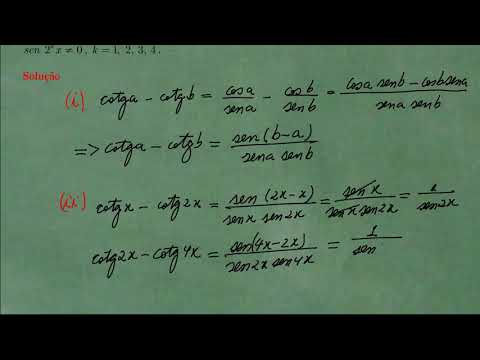 sen 2ᵏx ≠ 0, k = 1, 2, 3, 4.
Solução
(i) cotg a − cotg b = cos a / sen a − cos b / sen b = (cos a sen b − cos b sen a) / (sen a sen b)
=> cotg a − cotg b = sen(b−a) / (sen a sen b)
(ii) cotg x − cotg 2x = sen(2x−x) / (sen x sen 2x) = sen x / (sen x sen 2x) = 1 / sen 2x
cotg 2x − cotg 4x = sen(4x−2x) / (sen 2x sen 4x) = 1 / sen